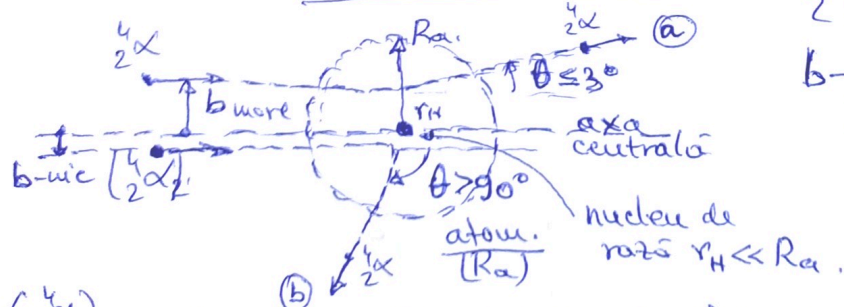 ⁴₂α
Ra.
⁴₂α
ⓐ
b-
θ ≤ 3°
b mare
rN
axa
centrală
b-mic
(⁴₂α)
θ>90°
nucleu de
rază rN << Ra.
atom.
(Ra)
⁴₂α
ⓑ